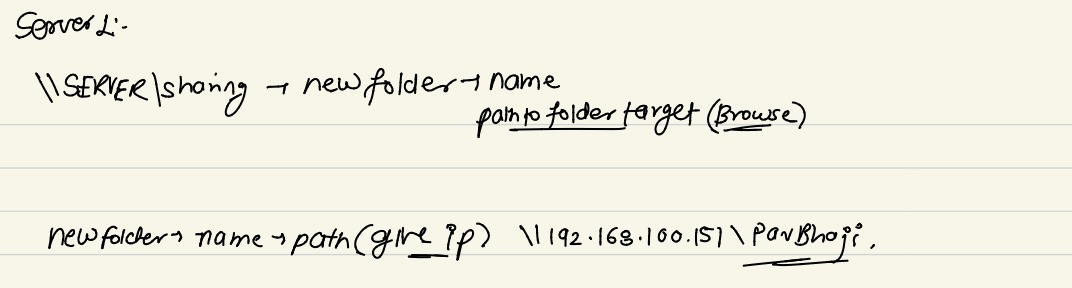 Server 1:-
\\SERVER\sharing → new folder → name
path to folder target (Browse)
new folder → name → path (give ip) \\192.168.100.151\PavBhaji.